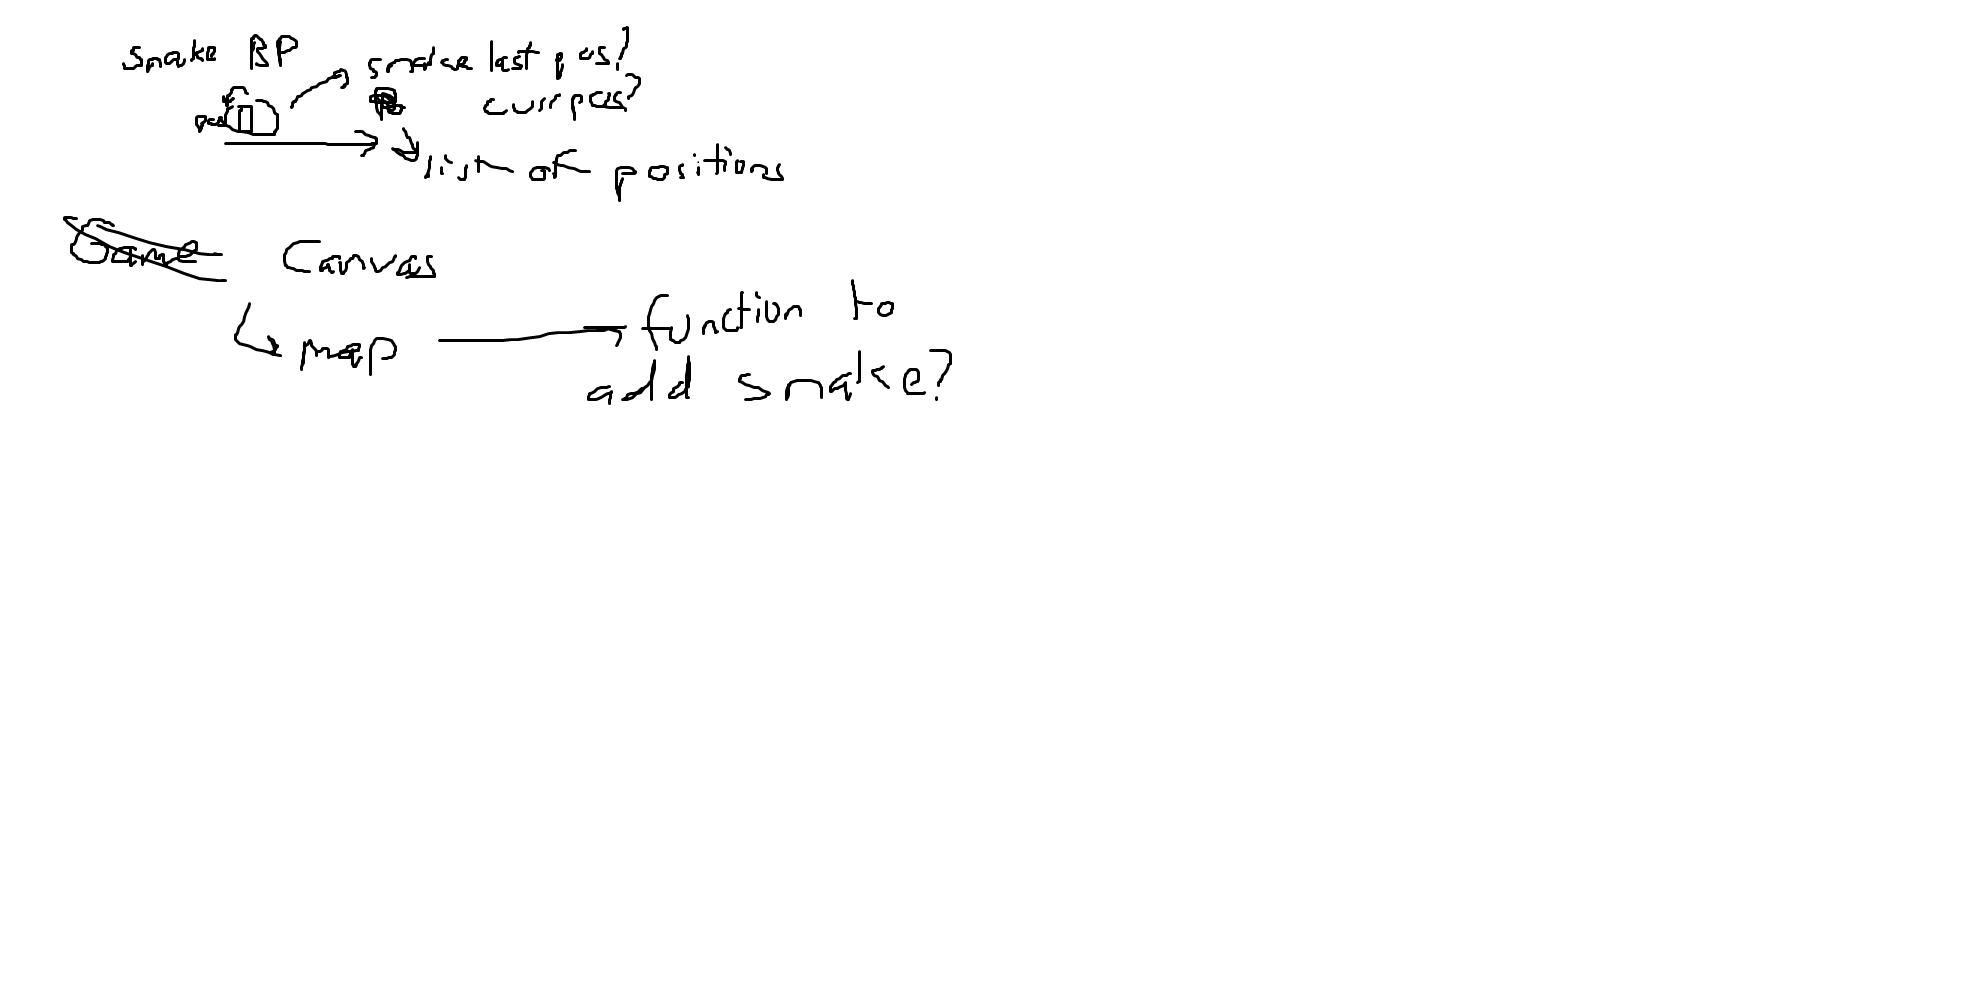 Snake BP
snake last pos?
curr pos?
pos
list of positions
Game Canvas
map
function to
add snake?